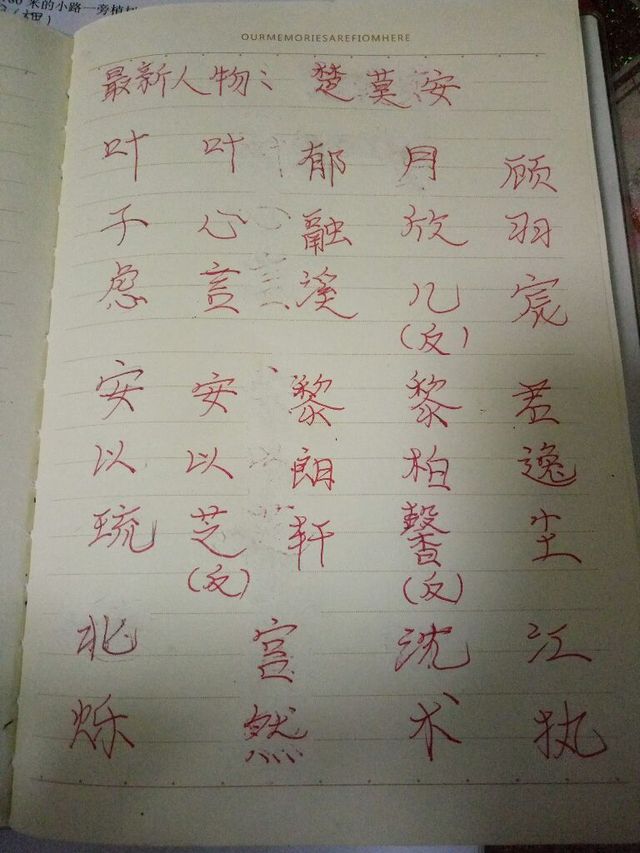 OURMEMORIESAREFIOMHERE
最新人物：楚莫安
叶 叶 郁 月 顾
子 心 融 放 羽
虑 言 溪 儿 宸
(反)
安 安 黎 黎 君
以 以 朗 柏 逸
琉 芝 轩 馨 尘
(反) (反)
北 宫 沈 江
烁 然 术 执